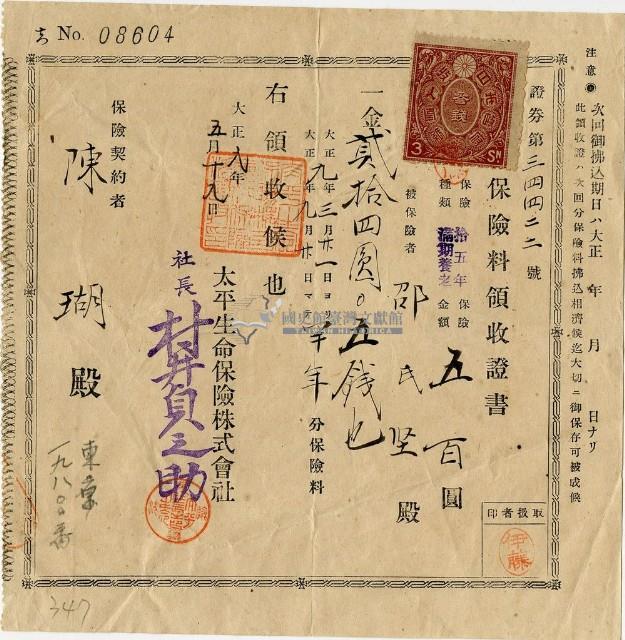 No. 08604
注意 次回御拂込期日ハ大正 年 月 日ナリ
此領收證ハ次回分保險料拂込相濟候迄大切ニ御保存可被成候
證券第三四四二二號
保險料領收證書
保險種類 拾五年滿期養老
保險金額 五百圓
被保險者 邵氏坚殿
一金貳拾四圓〇五錢也
大正九年三月廿一日ヨリ
大正九年九月廿日マデ
半年分保險料
右領收候也
大正八年
五月十九日
太平生命保險株式會社
社長 村井貞之助
保險契約者
陳 瑚 殿
東 一九八〇番
347
取扱者印
伊藤
3 SN
國史館臺灣文獻館
TAIWAN HISTORICA